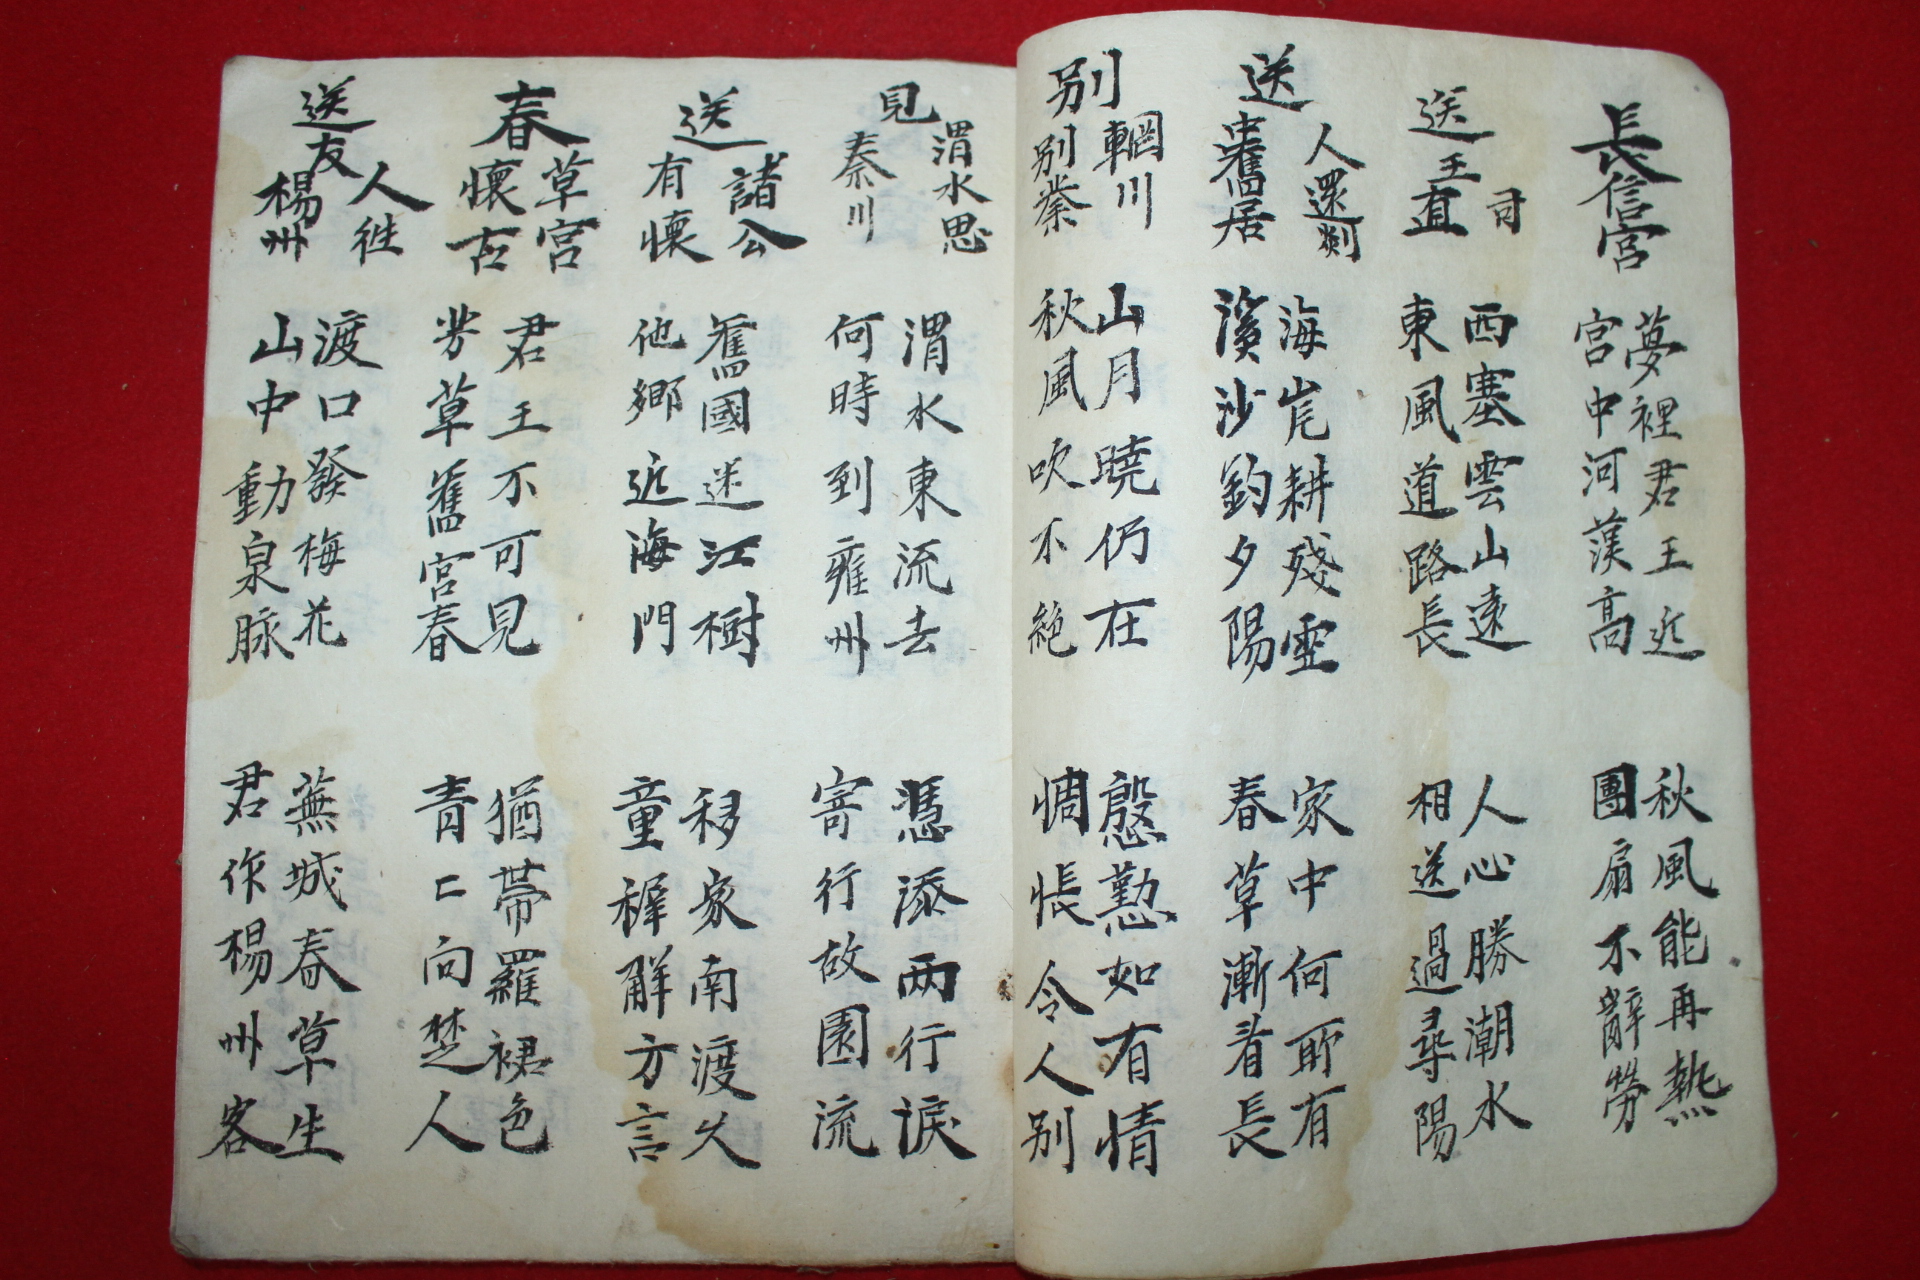 長信宮
夢裡君王近
宮中河漢高
秋風能再熱
團扇不辭勞
送王司直
西塞雲山遠
東風道路長
人心勝潮水
相送過尋陽
送人還
舊居
海岸耕殘雪
溪沙釣夕陽
家中何所有
春草漸看長
別輞川
別業
山月曉仍在
秋風吹不絶
慇懃如有情
惆悵令人別
見渭水思
秦川
渭水東流去
何時到雍州
憑添兩行淚
寄行故園流
送諸公
有懷
舊國迷江樹
他鄉近海門
移家南渡久
童穉解方言
春草宮
懷古
君王不可見
芳草舊宮春
猶帶羅裙色
青〻向楚人
送友人往
楊州
渡口發梅花
山中動泉脉
蕪城春草生
君作楊州客